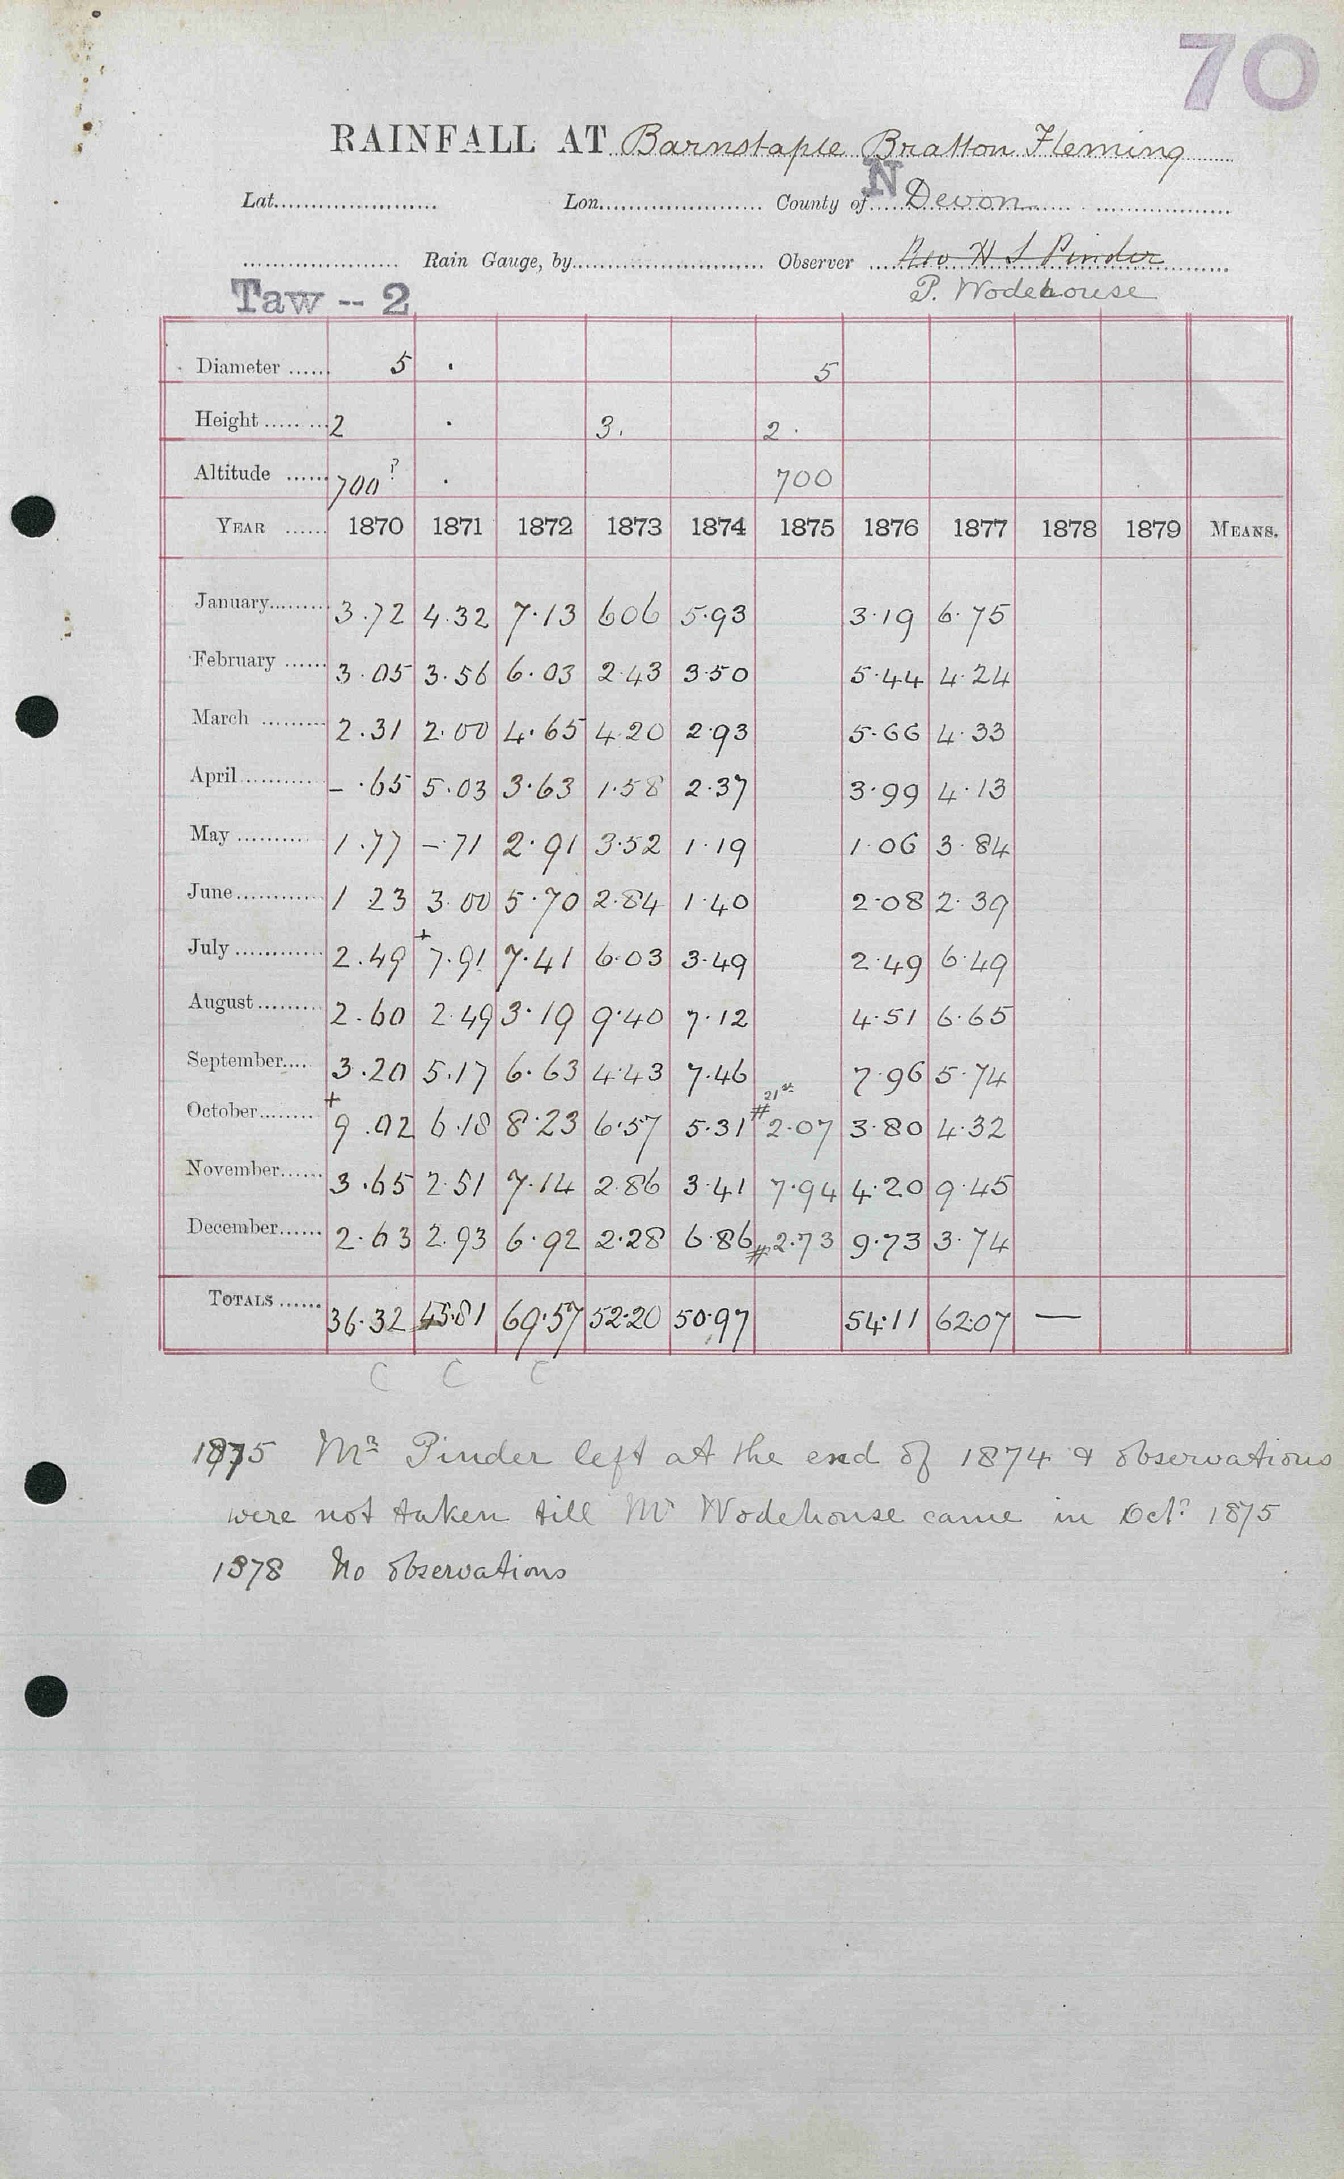 70
RAINFALL AT Barnstaple Bratton Fleming
Lat. Lon. County of N Devon
Rain Gauge, by Observer Rev H S Pinder
Taw -- 2 P. Wodehouse
Diameter 5 . 5
Height 2 . 3. 2.
Altitude 700? . 700
YEAR 1870 1871 1872 1873 1874 1875 1876 1877 1878 1879 MEANS.
January 3.72 4.32 7.13 6 06 5.93 3.19 6.75
February 3.05 3.56 6.03 2.43 3.50 5.44 4.24
March 2.31 2.00 4.65 4.20 2.93 5.66 4.33
April - .65 5.03 3.63 1.58 2.37 3.99 4.13
May 1.77 -.71 2.91 3.52 1.19 1.06 3.84
June 1 23 3.00 5.70 2.84 1.40 2.08 2.39
July 2.49 +7.91 7.41 6.03 3.49 2.49 6.49
August 2.60 2.49 3.19 9.40 7.12 4.51 6.65
September 3.20 5.17 6.63 4.43 7.46 7.96 5.74
21st
October +9.02 6.18 8.23 6.57 5.31 #2.07 3.80 4.32
November 3.65 2.51 7.14 2.86 3.41 7.94 4.20 9.45
December 2.63 2.93 6.92 2.28 6.86 #2.73 9.73 3.74
TOTALS 36.32 45.81 69.57 52.20 50.97 54.11 62.07 —
C C C
1875 Mr Pinder left at the end of 1874 & observations
were not taken till Mr Wodehouse came in Octr 1875
1878 No observations